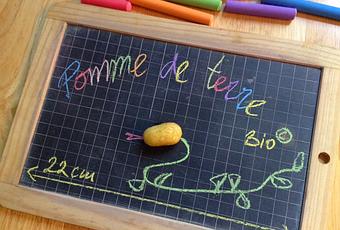 Pomme de terre
Bio
22 cm